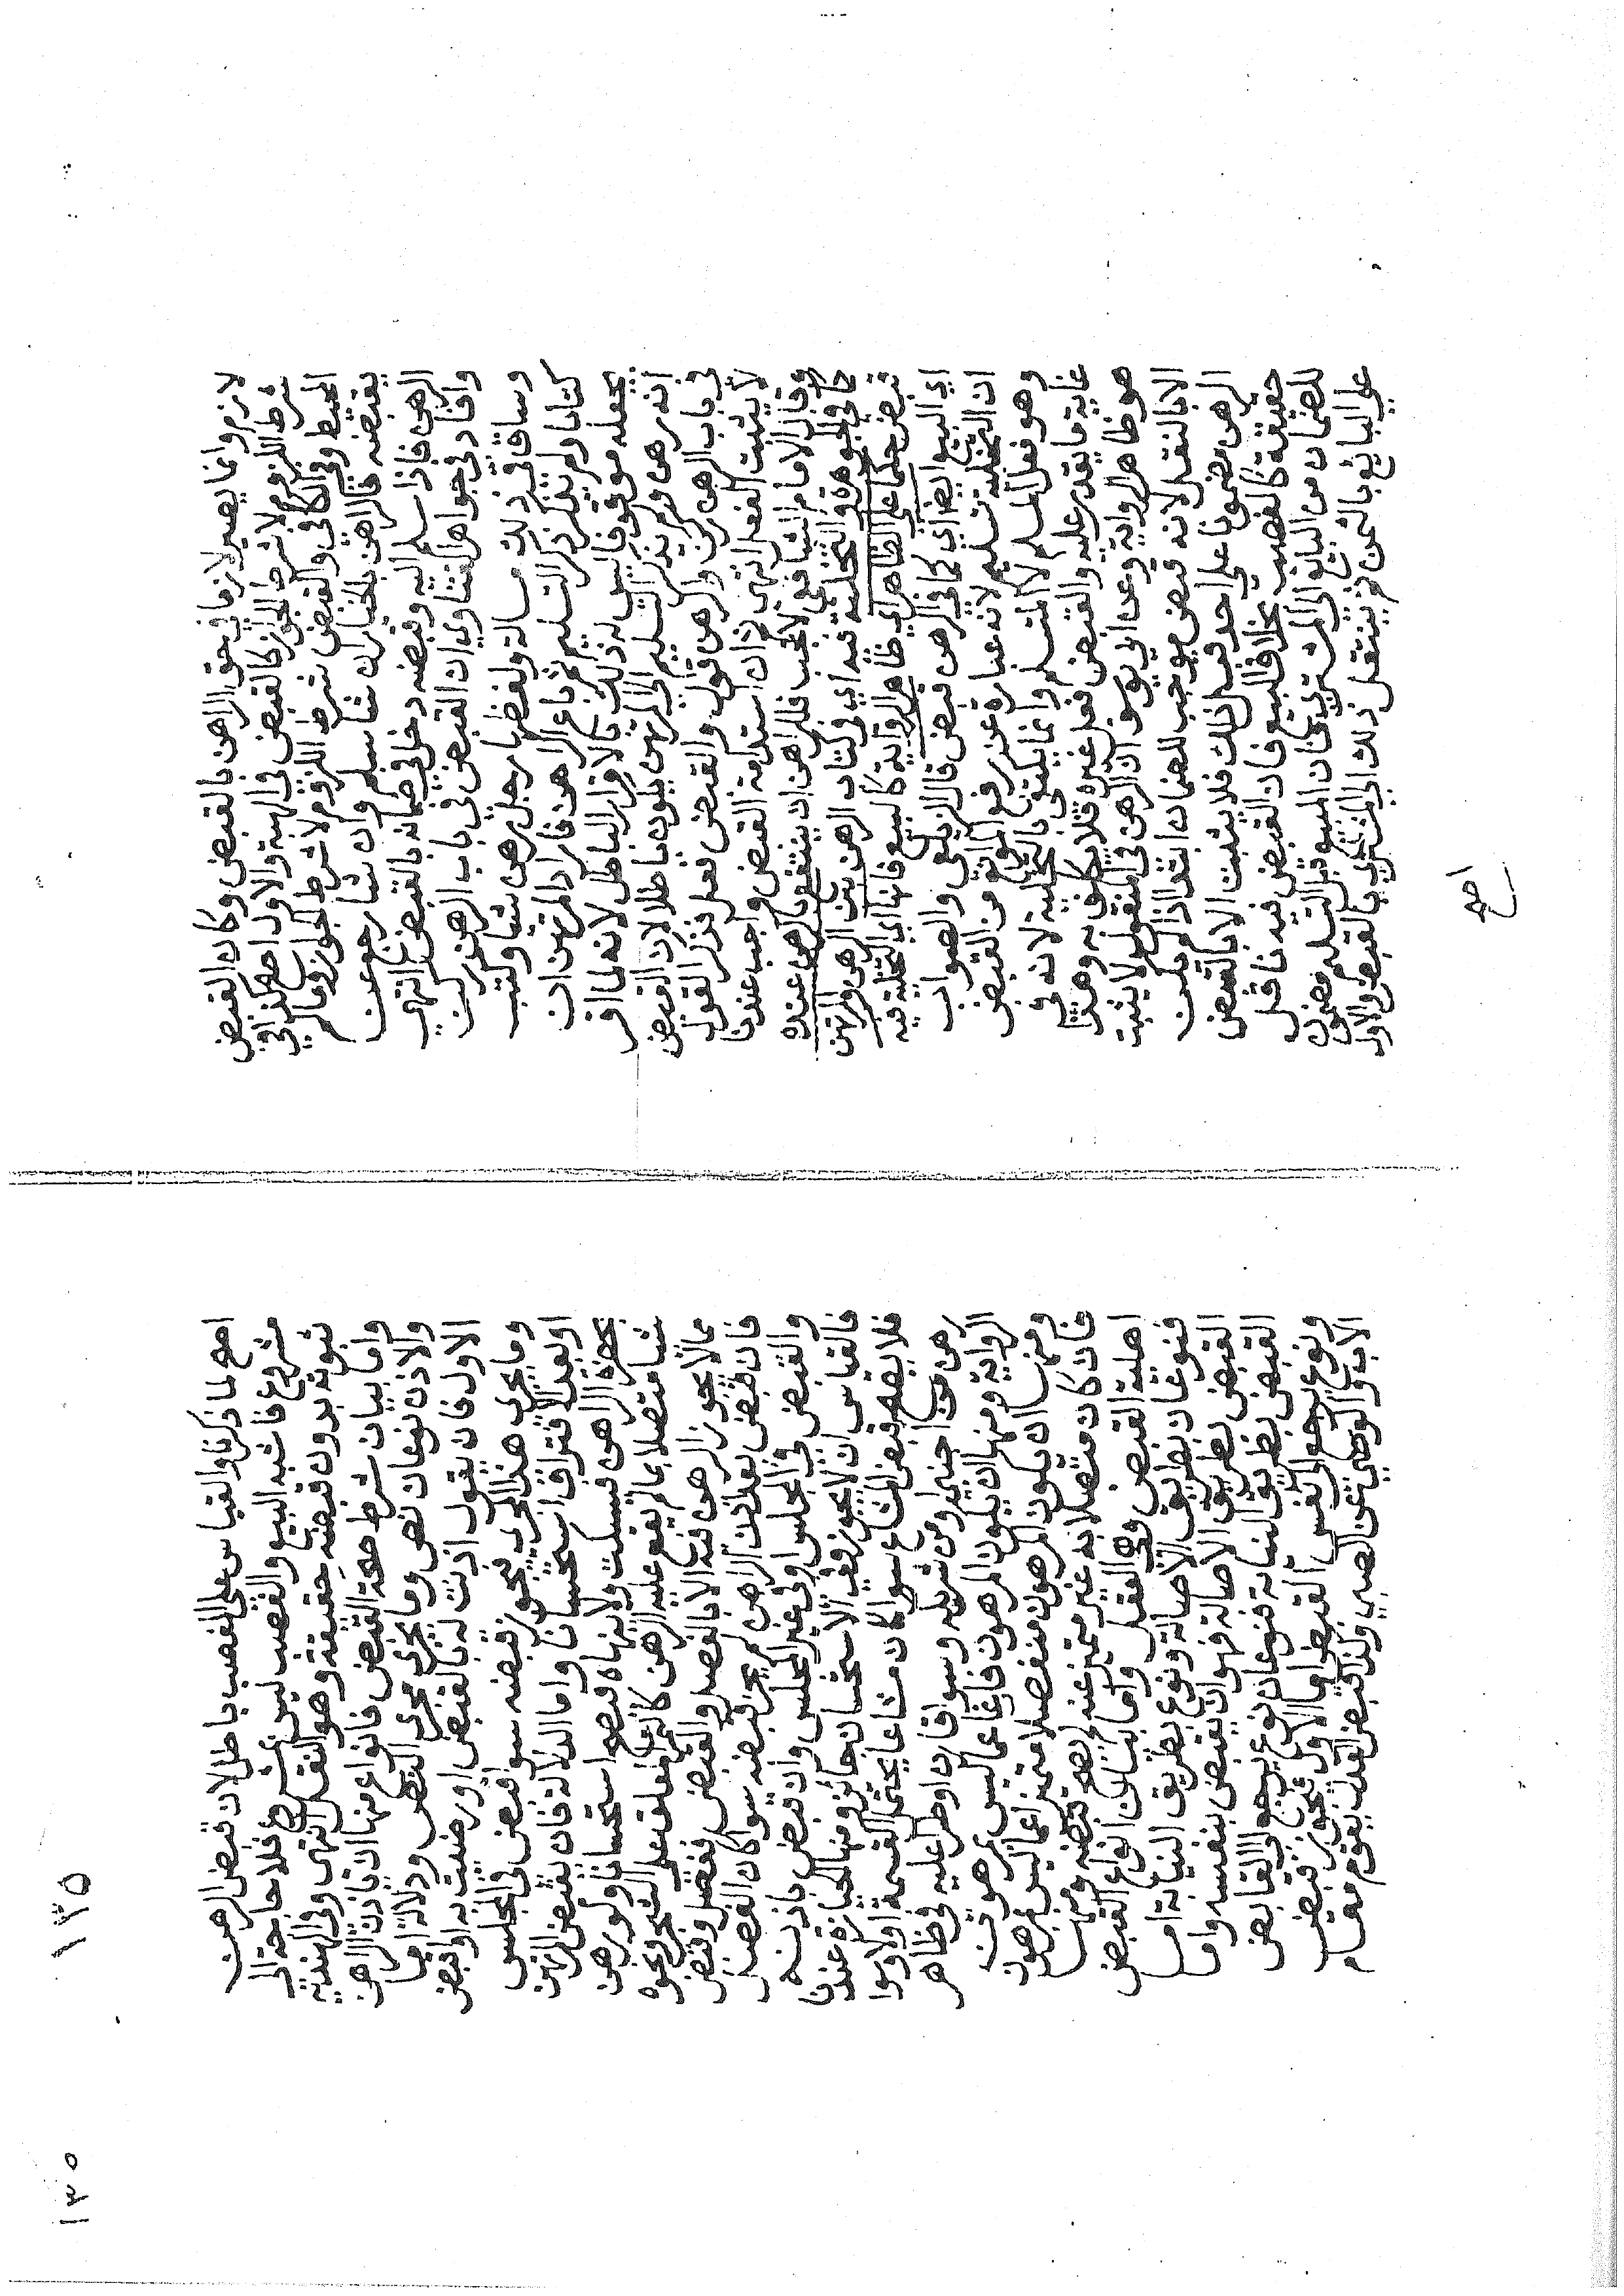 لازم وانما يصير لازما في حق الراهن بالقبض وكان القبض
شرط اللزوم لا شرط الجواز كالقبض في الهبة والاول اصح كذا في
المحيط وفي الكافي والقبض شرط اللزوم لا شرط الجواز وما لم
يقبضه فالراهن بالخيار ان شا سلم وان شا رجع عن
الرهن فاذا سلم اليه وقبضه دخل في ضمانه بالقبض انتهي
وافاد في جواهر الفتاوي ان القبض في باب الرهن ركن
وساق في ذلك مسالة ولفظها رجل رهن شيا وكتب
كتابا ولم يذكر ذكر التسليم ثم باع الراهن فاراد المرتهن ان
يجعله موقوفا ليس له ذلك بالاقرار الباطل لانه لما اقر
انه رهن ولم يذكر التسليم الى المرتهن يكون باطلا لان القبض
في باب الرهن ركن والرهن قول والقبض فعل فذكر القول
لا يثبت الفعل انتهى ثم ان استدامة القبض واجب عندنا
وقال الامام الشافعي لا يجب فللراهن ان ينتفع بالرهن عنده
كما في الجوهرة والتخلية فيه اي في كتاب الرهن بين الراهن والمرتهن
قبض حكما على الظاهر اي ظاهر الرواية كالبيع فانها اي التخلية فيه
اي البيع ايضا اي كما في الرهن قبض قال الزيلعي والصواب
ان التخلية تسليم لانه عبارة عن رفع الموانع من القبض
وهو فعل المسلم لا المتسلم وانما يكتفى بالتخلية لانه في
غاية ما يقدر عليه والقبض فعل غيره فلا يكلف به وهذا
هو ظاهر الرواية وعن ابي يوسف ان الرهن في المنقول لا يثبت
الا بالنقل لانه قبض موجب للضمان ابتدا اذ لم يكن
الرهن مضمونا على احد قبل ذلك فلا يثبت الا بالقبض
حقيقة كالغصب بخلاف البيع فان القبض فيه ناقل
للضمان من البائع الى المشتري لان المبيع قبل التسليم مضمون
على البائع بالثمن ثم ينتقل ذلك الى المشتري بالقبض والاول
اصح
١٣٥
١٣٥
اصح لما ذكرنا والقياس على الغصب باطل لان قبض الرهن
مشروع فاشبه البيع والغصب ليس بمشروع فلا حاجة الى
ثبوته بدون قبضه حقيقة وهو النقل انتهى وفي الهندية
واما بيان شرط صحة القبض فانواع منها ان ياذن الراهن
والاذن نوعان نص وما يجري مجرى النص ودلالة اما
الاول فان يقول اذنت له بالقبض او رضيت به او اقبض
وما يجري هذا المجرى فيجوز قبضه سوا قبض في المجلس
او بعد الافتراق استحسانا واما الدلالة فان يقبض المرتهن
بحضرة الراهن فيسكت ولا ينهاه فيصح استحسانا ولو رهن
شيا متصلا بما لم يقع عليه الرهن كالثمر المعلق على الشجر ونحوه
مما لا يجوز الرهن فيه الا بالفصل والقبض ففصل وقبض
فان قبض بغير اذن الراهن لم يجز قبضه سوا كان الفصل
والقبض في المجلس او في غير المجلس وان قبض باذنه
فالقياس ان لا يجوز وفي الاستحسان جائز ومنها الحيازة عندنا
فلا يصح قبض المشاع سوا كان مشاعا يحتمل القسمة او لا وسوا
رهن من اجنبي او من شريكه وسوا قارن او طرا عليه في ظاهر
الرواية ومنها ان يكون المرهون فارغا عما ليس بمرهون
ومنها ان يكون المرهون منفصلا متميزا عما ليس بمرهون
فان كان متصلا به غير متميز عنه لم يصح قبضه ومنها
اهلية القبض وهي العقل واما بيان انواع القبض
فنوعان بطريق الاصالة ونوع بطريق النيابة اما
القبض بطريق الاصالة فهو ان يقبض بنفسه واما
القبض بطريق النيابة فنوعان نوع يرجع الى القابض
ونوع يرجع الى نفس القبض اما الاول فيجوز قبض
الاب والوصي عن الصبي وكذا قبض العدل يقوم مقام